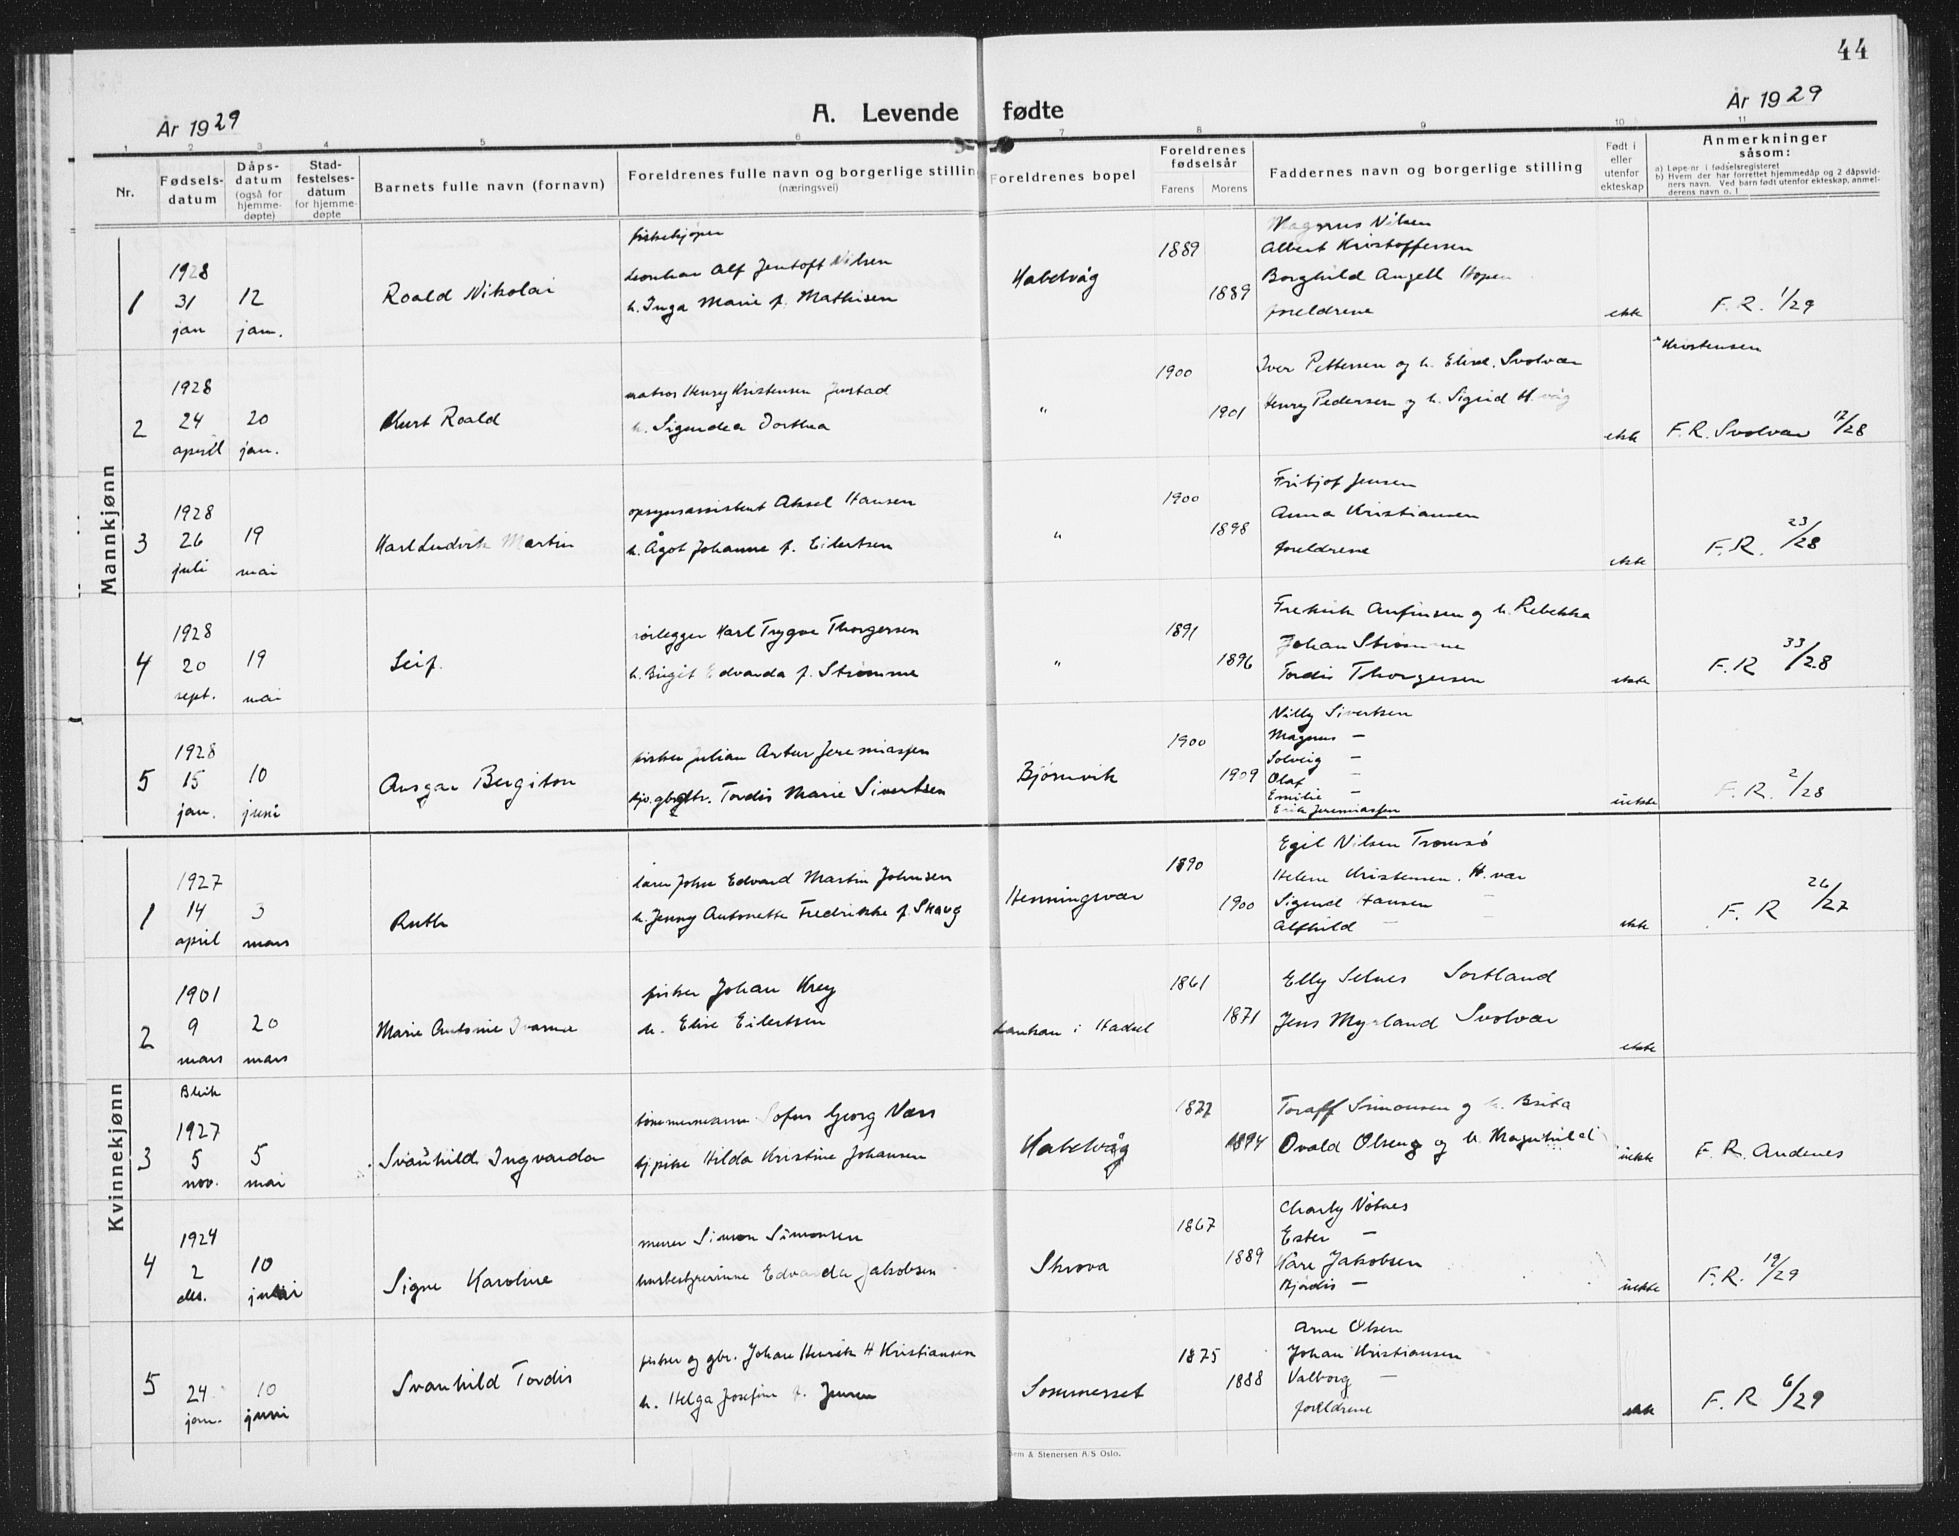 44
År 1929
A. Levende fødte
År 1929
1 2 3 4 5 6 7 8 9 10 11
Nr.
Fødsels-datum
Dåps-datum (også for hjemme-døpte)
Stad-festelses-datum for hjemme-døpte
Barnets fulle navn (fornavn)
Foreldrenes fulle navn og borgerlige stilling (næringsvei)
Foreldrenes bopel
Foreldrenes fødselsår
Farens Morens
Faddernes navn og borgerlige stilling
Født i eller utenfor ekteskap
Anmerkninger såsom:
a) Løpe-nr i fødselsregisteret
b) Hvem der har forrettet hjemmedåp og 2 dåpsvidners navn. Ved barn født utenfor ekteskap, anmelderens navn o. l
Mannkjønn
1
1928
31
jan
12
jan.
Roald Nikolai
fiskekjøper
Leonhar Alf Jentoft Nilsen
h. Inga Marie f. Mathisen
Kabelvåg
1889
1889
Magnus Nilsen
Albert Kristoffersen
Borghild Angell Hopen
foreldrene
ekte
F. R. 1/29
2
1928
24
april
20
jan.
Kurt Roald
matros Henry Kristensen Justad
h. Dorthea
"
1900
1901
Iver Pettersen og h. Elise. Svolvær
Henry Pedersen og h. Sigrid
Kristensen
ekte
F. R. Svolvær 17/28
3
1928
26
juli
19
mai
Karl Ludvik Martin
opsynsassistent Aksel Hansen
h. Ågot Johanne f. Eilertsen
"
1900
1898
Fritjof Jensen
Anna Kristiansen
foreldrene
ekte
F. R. 23/28
4
1928
20
sept.
19
mai
Leif.
rørlegger Karl Trygve Thorgersen
h. Birgit Edvarda f. Strømme
"
1891
1896
Fredrik Anfinsen og h. Rebekka
Johan Strømme
Tordis Thorgersen
ekte
F. R 33/28
5
1928
15
jan.
10
juni
Ansgar Bergiton
fisker Julian Artur Jeremiassen
Tordis Marie Sivertsen
Bjørnvik
1900
1909
Nilly Sivertsen
Magnus —
Solveig —
Olaf —
Emilie —
Erik Jeremiassen
uekte
F. R. 2/28
Kvinnekjønn
1
1927
14
april
3
mars
Ruth
lærer John Edvard Martin Johnsen
h. Jenny Antonette Fredrikke f. Skaug
Henningsvær
1890
1900
Egil Nilsen Tromsø
Helene Kristensen. H.vær
Sigurd Hansen —
Alfhild —
ekte
F. R 26/27
2
1901
9
mars
20
mars
Marie Antonie
fisker Johan Krey
h. Elise Eilertsen
i Hadsel
1861
1871
Elly Selnes Sortland
Jens Myrland Svolvær
ekte
3
Bleik
1927
5
nov.
5
mai
Svanhild Ingvarda
tømmermann Sofus Georg Næss
pike Hilda Kristine Johansen
Kabelvåg
1877
1894
Toralf Simonsen og h. Brita
Ovald Olsen og h. Magnhild
uekte
F. R. Andenes
4
1924
2
des.
10
Signe Karoline
murer Simon Simonsen
husbestyrerinne Edvarda Jakobsen
Skrova
1867
1889
Charly Nøtnes
Ester —
Kåre Jakobsen
Bjørdis —
uekte
F. R. 19/29
5
24
jan.
10
juni
Svanhild Tordis
fisker og gbr. Johan Henrik H Kristiansen
h. Helga Josefine f. Jensen
Sommerset
1875
1888
Arne Olsen
Johan Kristiansen
Valborg —
foreldrene
ekte
F. R 6/29
Sem & Stenersen A/S Oslo.